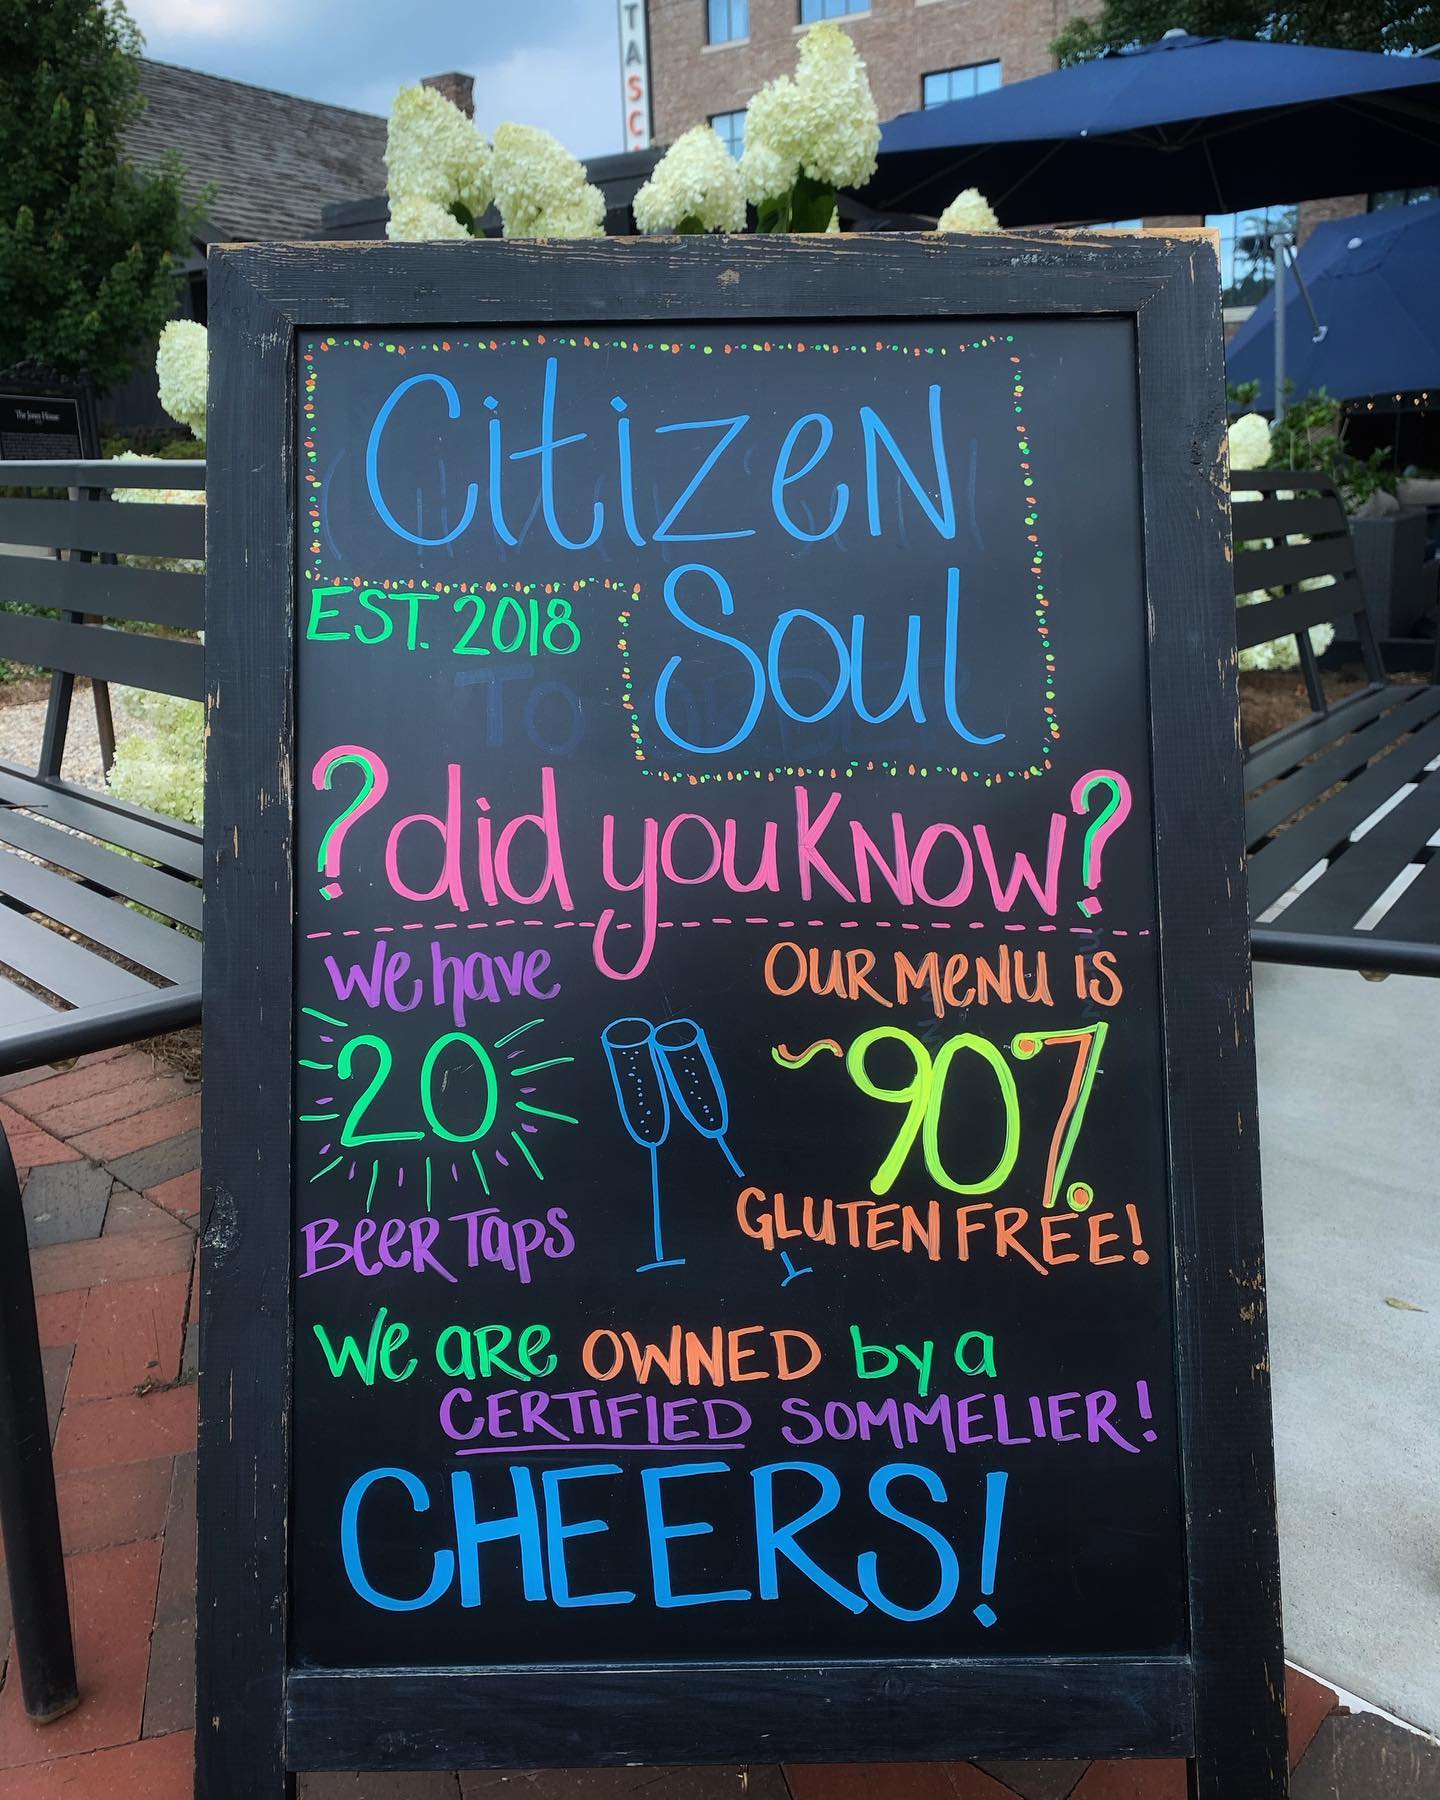 TASC
The Jones House
Citizen
Soul
EST. 2018
?did you know?
We have
20
Beer Taps
OUR MENU IS
~90%
GLUTEN FREE!
We are OWNED by a
CERTIFIED SOMMELIER!
CHEERS!